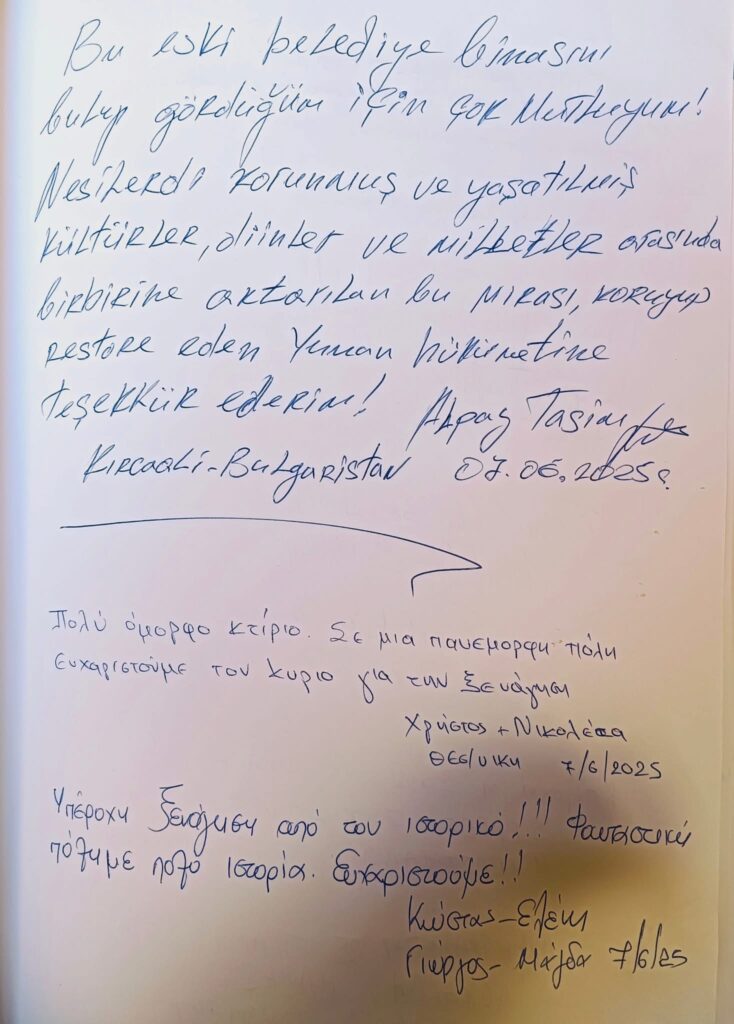 Bu eski belediye binasını
bulup gördüğüm için çok mutluyum!
Nesillerdi korunmuş ve yaşatılmış
kültürler, diinler ve milletler arasında
birbirine aktarılan bu mirası, koruyup
restore eden Yunan hükümetine
teşekkür ederim! Alpay Tasim
Kırcaali-Bulgaristan 07.06.2025
Πολύ όμορφο κτίριο. Σε μια πανεμορφη πόλη
ευχαριστούμε τον κυριο για την ξενάγηση
Χρήστος + Νικολέττα
Θεσ/νικη 7/6/2025
Υπέροχη ξενάγηση από τον ιστορικό!!! Φανταστική
πόλη με πολύ ιστορία. Ευχαριστούμε!!
Κώστας-Ελένη
Γιώργος- Μάγδα 7/6/25